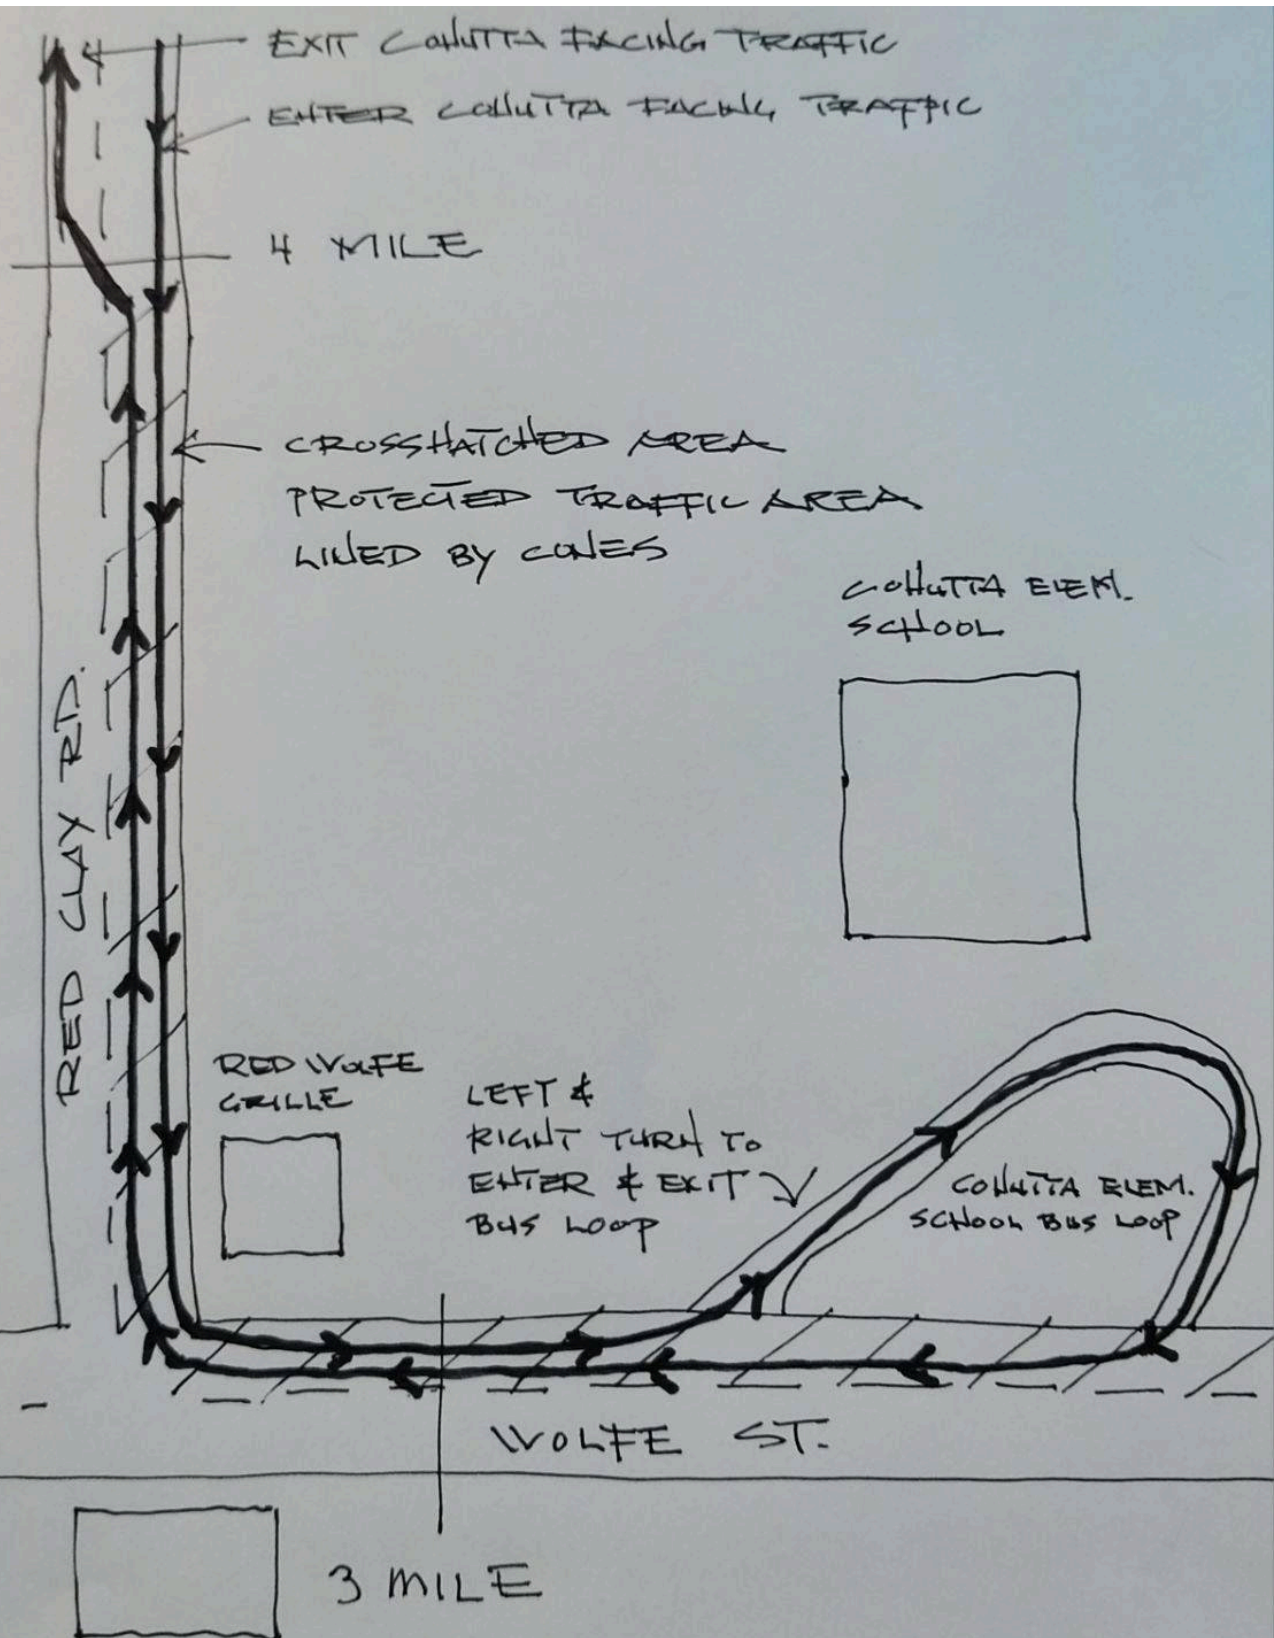 EXIT COHUTTA FACING TRAFFIC
ENTER COHUTTA FACING TRAFFIC
4 MILE
CROSSHATCHED AREA
PROTECTED TRAFFIC AREA
LINED BY CONES
COHUTTA ELEM.
SCHOOL
RED CLAY RD.
RED WOLFE
GRILLE
LEFT &
RIGHT TURN TO
ENTER & EXIT
BUS LOOP
COHUTTA ELEM.
SCHOOL BUS LOOP
WOLFE ST.
3 MILE